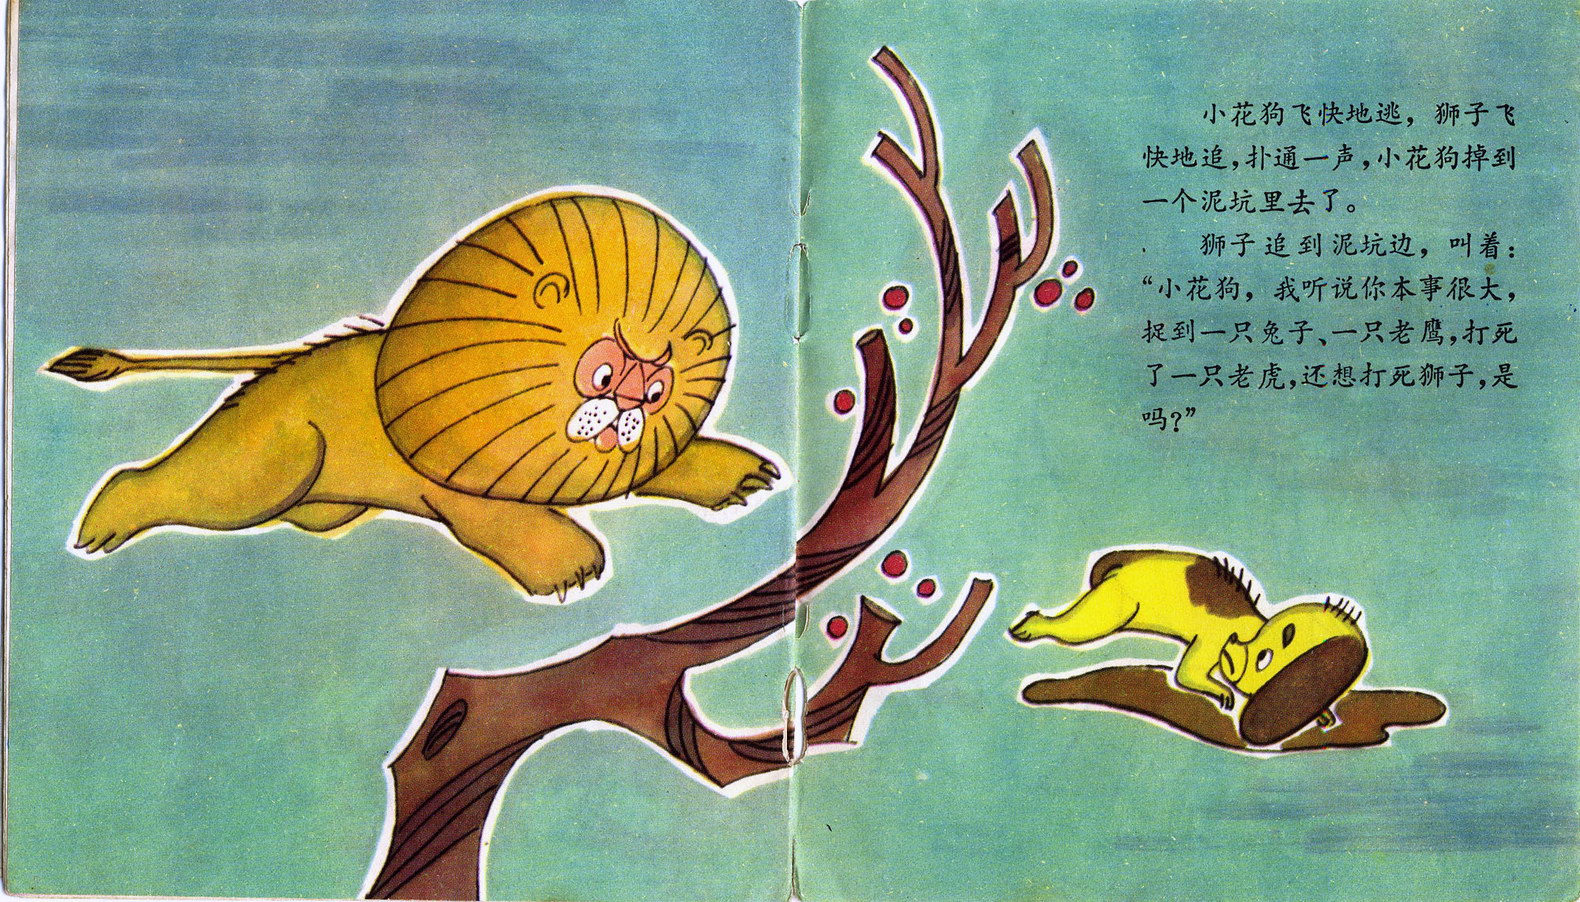 小花狗飞快地逃，狮子飞
快地追，扑通一声，小花狗掉到
一个泥坑里去了。
狮子追到泥坑边，叫着：
“小花狗，我听说你本事很大，
捉到一只兔子、一只老鹰，打死
了一只老虎，还想打死狮子，是
吗？”